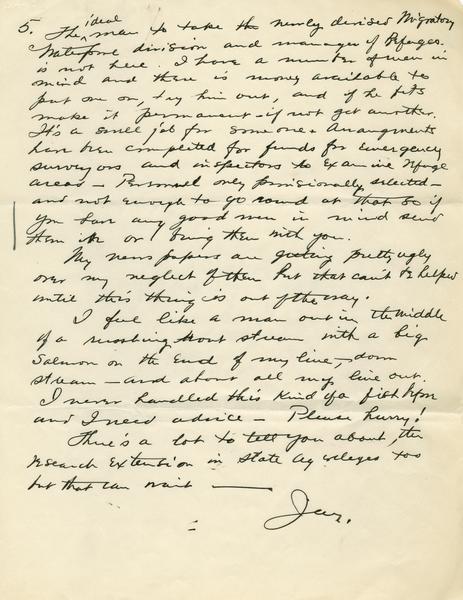 5. The ideal man to take the newly devised Migratory
Waterfowl division and manager of Refuges
is not here. I have a number of men in
mind and there is money available to
put one on, try him out, and if he fits
make it permanent - if not get another.
It's a swell job for someone. Arrangments
have been completed for funds for Emergency
surveyors and inspectors to Examine Refuge
areas - Personnel only provisionally selected -
and not enough to go round at that so if
you have any good men in mind send
them in or bring them with you.
My newspapers are getting pretty ugly
over my neglect of them but that can't be helped
until this thing is out of the way.
I feel like a man out in the middle
of a rushing trout stream with a big
Salmon on the End of my line, - down
stream - and about all my line out.
I never handled this Kind of a fish before
and I need advice - Please hurry!
There's a lot to tell you about the
research Extension in State Ag colleges too
but that can wait
Jay.